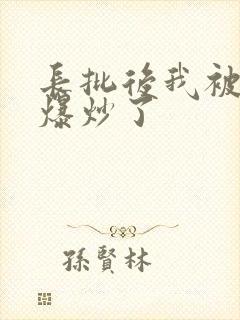 長批後我被
爆炒了
孫賢林